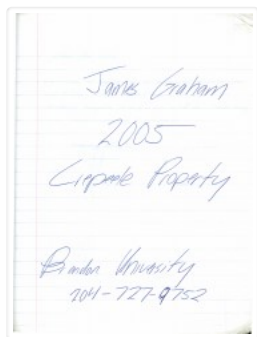 James Graham
2005
Property
Brandon University
204-727-9752